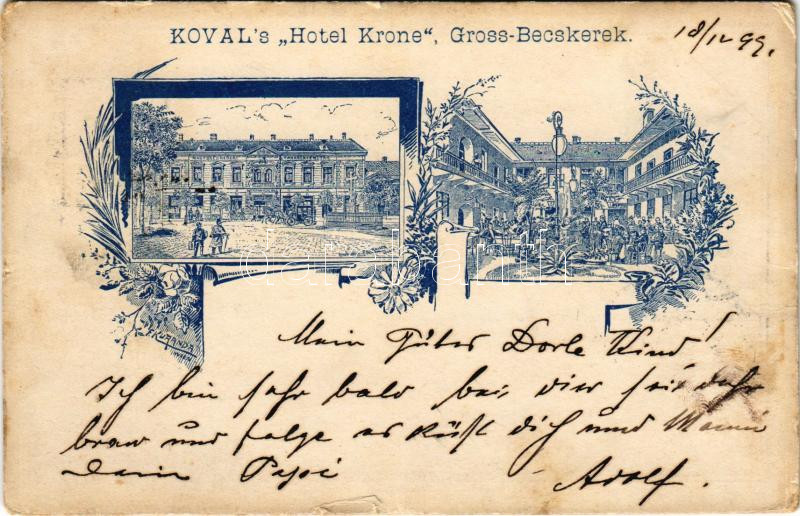 KOVAL's „Hotel Krone“, Gross-Becskerek.
18/12 99.
KURANDA
WIEN
darabanth
Mein Gutes Dorle Kind!
Ich bin sehr bald bei dir sei sehr
brav und folge es küßt dich und Mami
dein Papi Adolf.